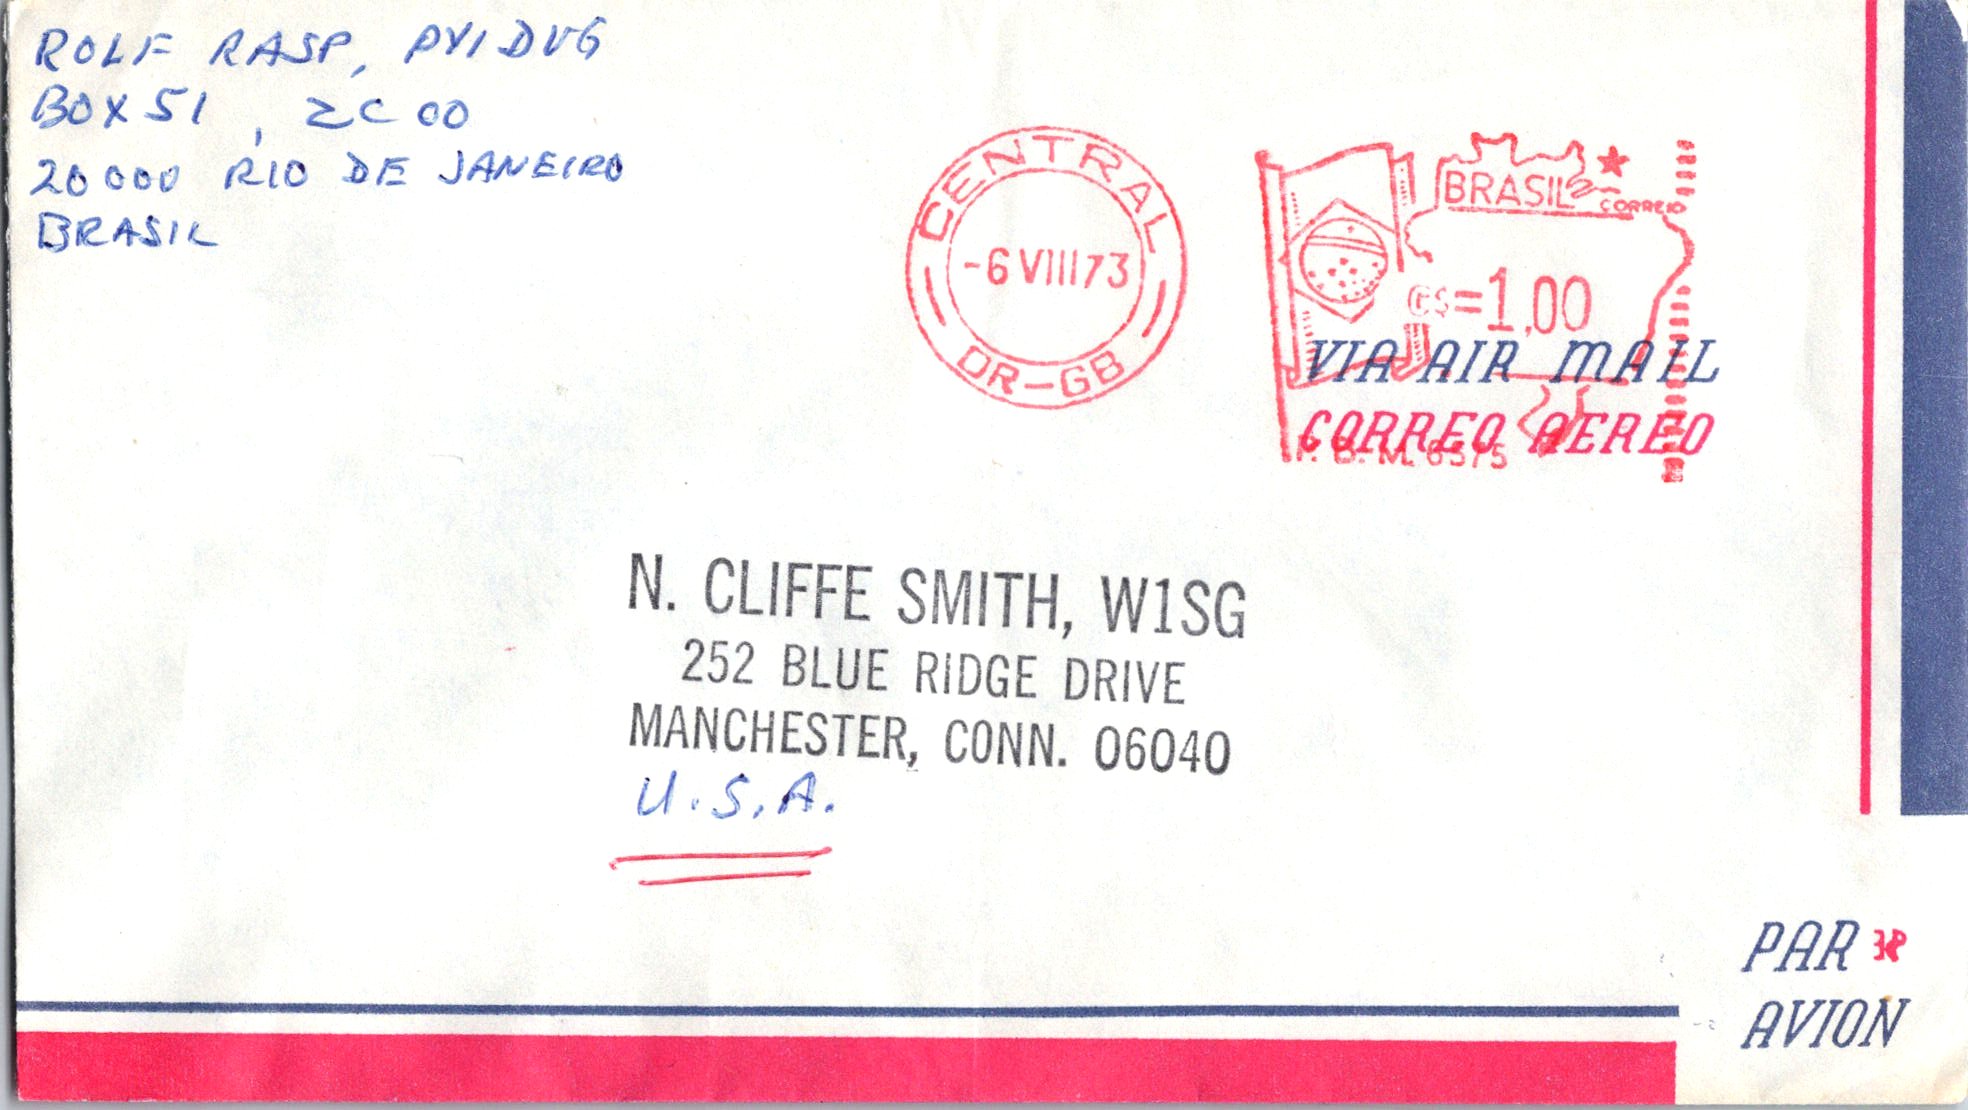 ROLF RASP, PY1DVG
BOX 51, ZC 00
20000 RIO DE JANEIRO
BRASIL
CENTRAL
-6 VIII 73
DR-GB
BRASIL
CORREIO
=1,00
VIA AIR MAIL
CORREO AEREO
N. CLIFFE SMITH, W1SG
252 BLUE RIDGE DRIVE
MANCHESTER, CONN. 06040
U.S.A.
PAR
AVION